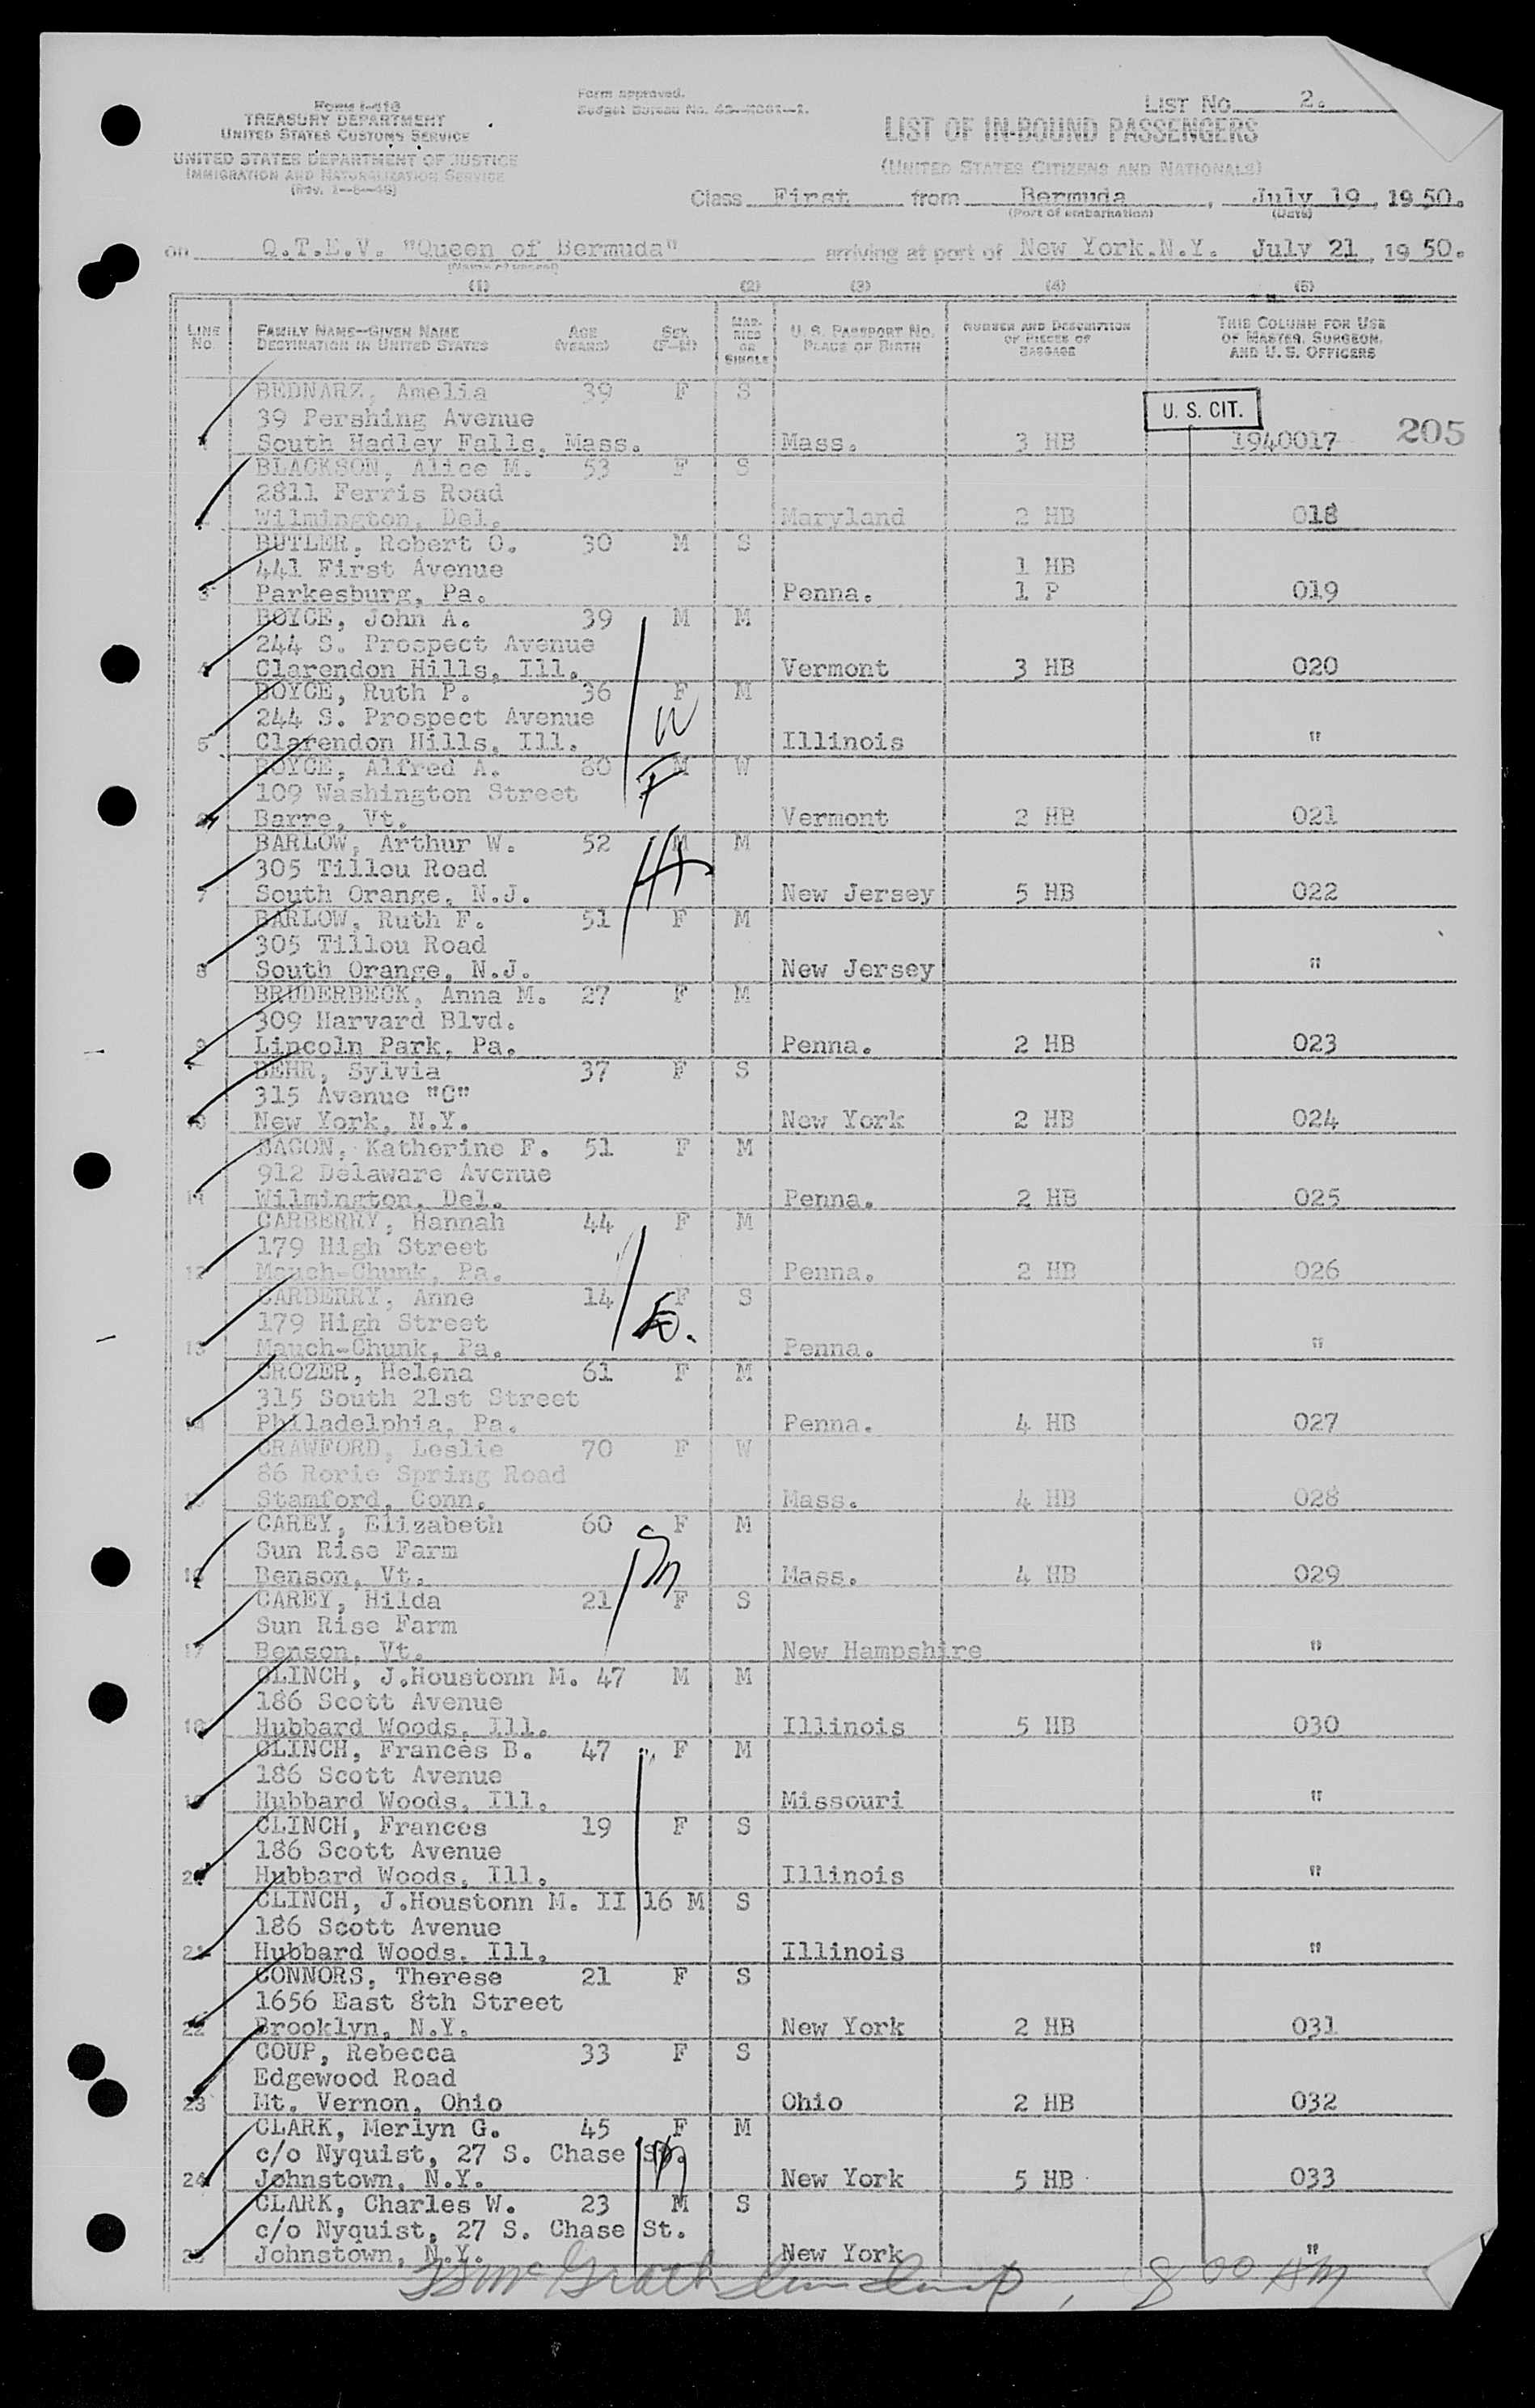 Form I-418
TREASURY DEPARTMENT
UNITED STATES CUSTOMS SERVICE
UNITED STATES DEPARTMENT OF JUSTICE
IMMIGRATION AND NATURALIZATION SERVICE
Form approved.
Budget Bureau No.
LIST No. 2.
LIST OF IN-BOUND PASSENGERS
(UNITED STATES CITIZENS AND NATIONALS)
Class First from Bermuda, July 19, 1950.
(Port of embarkation) (Date)
on Q.T.E.V. "Queen of Bermuda" arriving at port of New York.N.Y. July 21, 1950.
(Name of vessel)
(1) (2) (3) (4) (5)
LINE No FAMILY NAME—GIVEN NAME DESTINATION IN UNITED STATES AGE (YEARS) SEX (F—M) MARRIED OR SINGLE U. S. PASSPORT NO. PLACE OF BIRTH NUMBER AND DESCRIPTION OF PIECES OF BAGGAGE THIS COLUMN FOR USE OF MASTER, SURGEON, AND U. S. OFFICERS
BEDNARZ, Amelia 39 F S
39 Pershing Avenue U. S. CIT.
1 South Hadley Falls, Mass. Mass. 3 HB 1940017 205
BLACKSON, Alice M. 53 F S
2811 Ferris Road
2 Wilmington, Del. Maryland 2 HB 018
BUTLER, Robert O. 30 M S
441 First Avenue 1 HB
3 Parkesburg, Pa. Penna. 1 P 019
BOYCE, John A. 39 M M
244 S. Prospect Avenue
4 Clarendon Hills, Ill. Vermont 3 HB 020
BOYCE, Ruth P. 36 F M
244 S. Prospect Avenue W
5 Clarendon Hills, Ill. Illinois "
BOYCE, Alfred A. 80 M W
109 Washington Street F
6 Barre, Vt. Vermont 2 HB 021
BARLOW, Arthur W. 52 M M
305 Tillou Road
7 South Orange, N.J. New Jersey 5 HB 022
BARLOW, Ruth F. 51 F M
305 Tillou Road
8 South Orange, N.J. New Jersey "
BRUDERBECK, Anna M. 27 F M
309 Harvard Blvd.
9 Lincoln Park, Pa. Penna. 2 HB 023
BEHR, Sylvia 37 F S
315 Avenue "C"
10 New York, N.Y. New York 2 HB 024
BACON, Katherine F. 51 F M
912 Delaware Avenue
11 Wilmington, Del. Penna. 2 HB 025
CARBERRY, Hannah 44 F M
179 High Street
12 Mauch-Chunk, Pa. Penna. 2 HB 026
CARBERRY, Anne 14 F S
179 High Street
13 Mauch-Chunk, Pa. Penna. "
CROZER, Helena 61 F M
315 South 21st Street
14 Philadelphia, Pa. Penna. 4 HB 027
CRAWFORD, Leslie 70 F W
86 Rorie Spring Road
15 Stamford, Conn. Mass. 4 HB 028
CAREY, Elizabeth 60 F M
Sun Rise Farm
16 Benson, Vt. Mass. 4 HB 029
CAREY, Hilda 21 F S
Sun Rise Farm
17 Benson, Vt. New Hampshire "
CLINCH, J.Houstonn M. 47 M M
186 Scott Avenue
18 Hubbard Woods, Ill. Illinois 5 HB 030
CLINCH, Frances B. 47 F M
186 Scott Avenue
19 Hubbard Woods, Ill. Missouri "
CLINCH, Frances 19 F S
186 Scott Avenue
20 Hubbard Woods, Ill. Illinois "
CLINCH, J.Houstonn M. II 16 M S
186 Scott Avenue
21 Hubbard Woods, Ill. Illinois "
CONNORS, Therese 21 F S
1656 East 8th Street
22 Brooklyn, N.Y. New York 2 HB 031
COUP, Rebecca 33 F S
Edgewood Road
23 Mt. Vernon, Ohio Ohio 2 HB 032
CLARK, Merlyn G. 45 F M
c/o Nyquist, 27 S. Chase St.
24 Johnstown, N.Y. New York 5 HB 033
CLARK, Charles W. 23 M S
c/o Nyquist, 27 S. Chase St.
25 Johnstown, N.Y. New York "
McGrath 8 00 AM